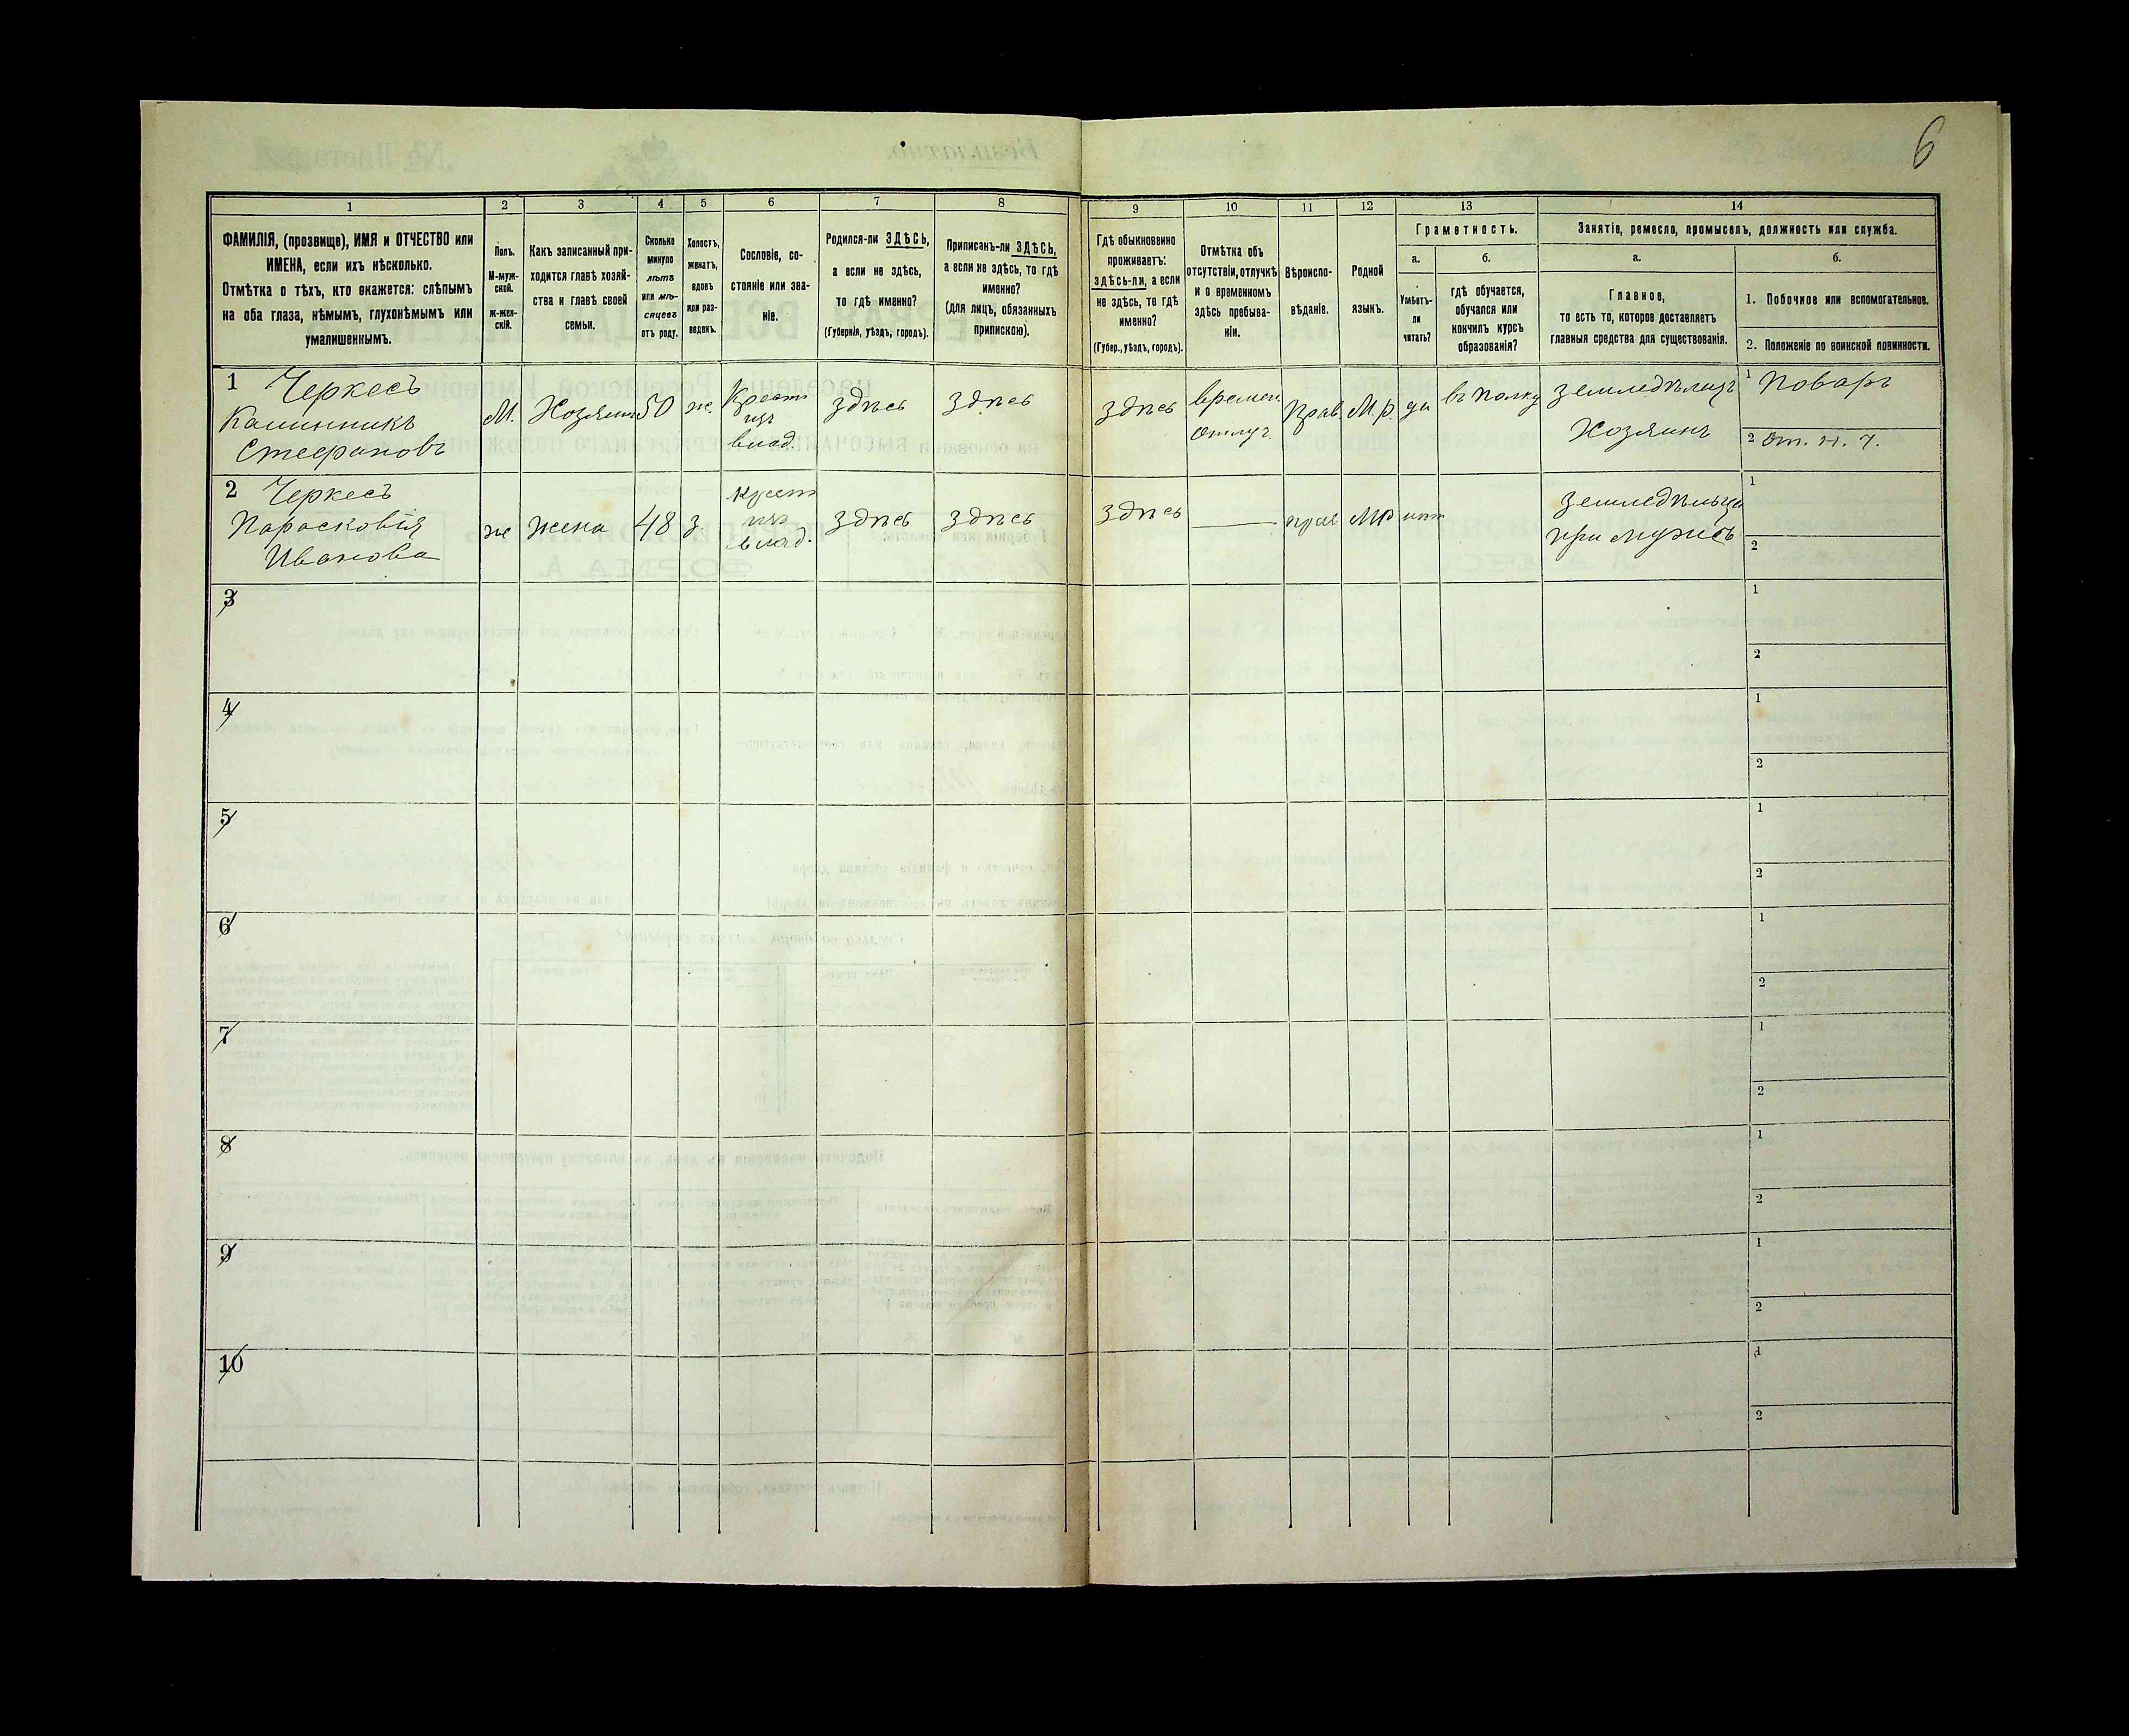 6
1
2
3
4
5
6
7
8
9
10
11
12
13
14
ФАМИЛІЯ, (прозвище), ИМЯ и ОТЧЕСТВО или
ИМЕНА, если ихъ нѣсколько.
Отмѣтка о тѣхъ, кто окажется: слѣпымъ
на оба глаза, нѣмымъ, глухонѣмымъ или
умалишеннымъ.
Полъ.
М-муж-
ской.
ж-жен-
скій.
Какъ записанный при-
ходится главѣ хозяй-
ства и главѣ своей
семьи.
Сколько
минуло
лѣтъ
или мѣ-
сяцевъ
отъ роду.
Холостъ,
женатъ,
вдовъ
или раз-
веденъ.
Сословіе, со-
стояніе или зва-
ніе.
Родился-ли ЗДѢСЬ,
а если не здѣсь,
то гдѣ именно?
(Губернія, уѣздъ, городъ).
Приписанъ-ли ЗДѢСЬ,
а если не здѣсь, то гдѣ
именно?
(для лицъ, обязанныхъ
припискою).
Гдѣ обыкновенно
проживаетъ:
здѣсь-ли, а если
не здѣсь, то гдѣ
именно?
(Губер., уѣздъ, городъ).
Отмѣтка объ
отсутствіи, отлучкѣ
и о временномъ
здѣсь пребыва-
ніи.
Вѣроиспо-
вѣданіе.
Родной
языкъ.
Грамотность.
а.
Умѣетъ-
ли
читать?
б.
гдѣ обучается,
обучался или
кончилъ курсъ
образованія?
Занятіе, ремесло, промыселъ, должность или служба.
а.
Главное,
то есть то, которое доставляетъ
главныя средства для существованія.
б.
1. Побочное или вспомогательное.
2. Положеніе по воинской повинности.
1 Черкесъ
Калинникъ
Стефановъ
М.
Хозяинъ
50
ж.
Крест
изъ
влад.
здѣсь
здѣсь
здѣсь
времен.
отлуч.
Прав.
М.р.
да
въ полку
земледѣлецъ
Хозяинъ
1 Поваръ
2 От. н. ч.
2 Черкесъ
Парасковія
Иванова
ж
жена
48
з.
крест
изъ
влад.
здѣсь
здѣсь
здѣсь
прав
МР
нѣт
при мужѣ
1
2
3
1
2
4
1
2
5
1
2
6
1
2
7
1
2
8
1
2
9
1
2
10
1
2